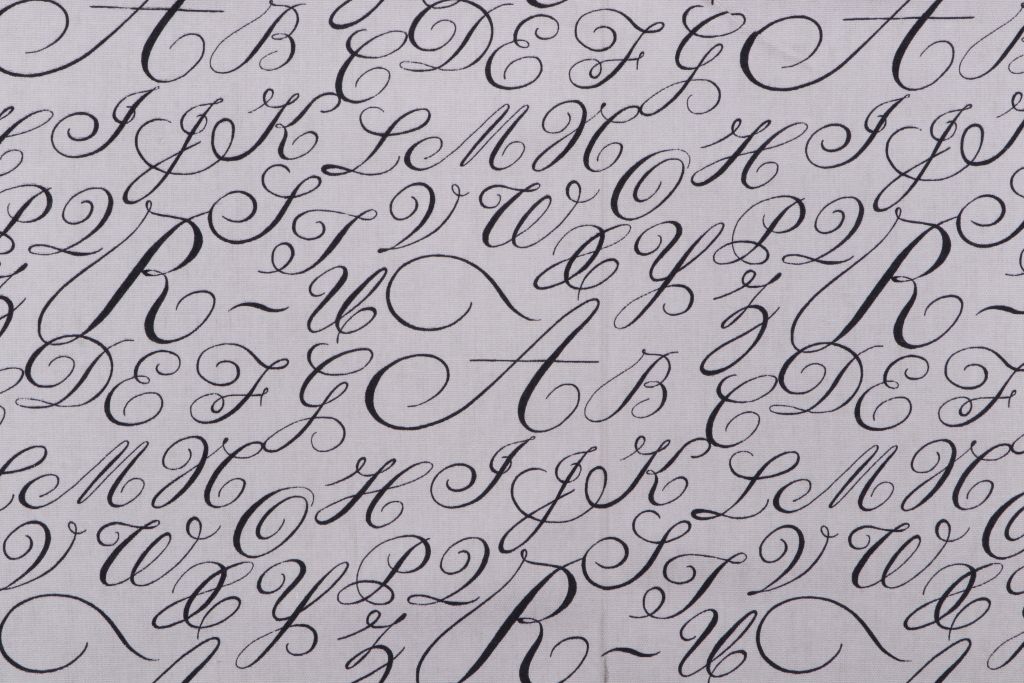 A B C D E F G A B
H I J K L M N O H I J K
P Q R S T U V W X Y Z P Q R S
D E F G A B C D E F
L M N O H I J K L M N O
V W X Y Z P Q R S T U V W X